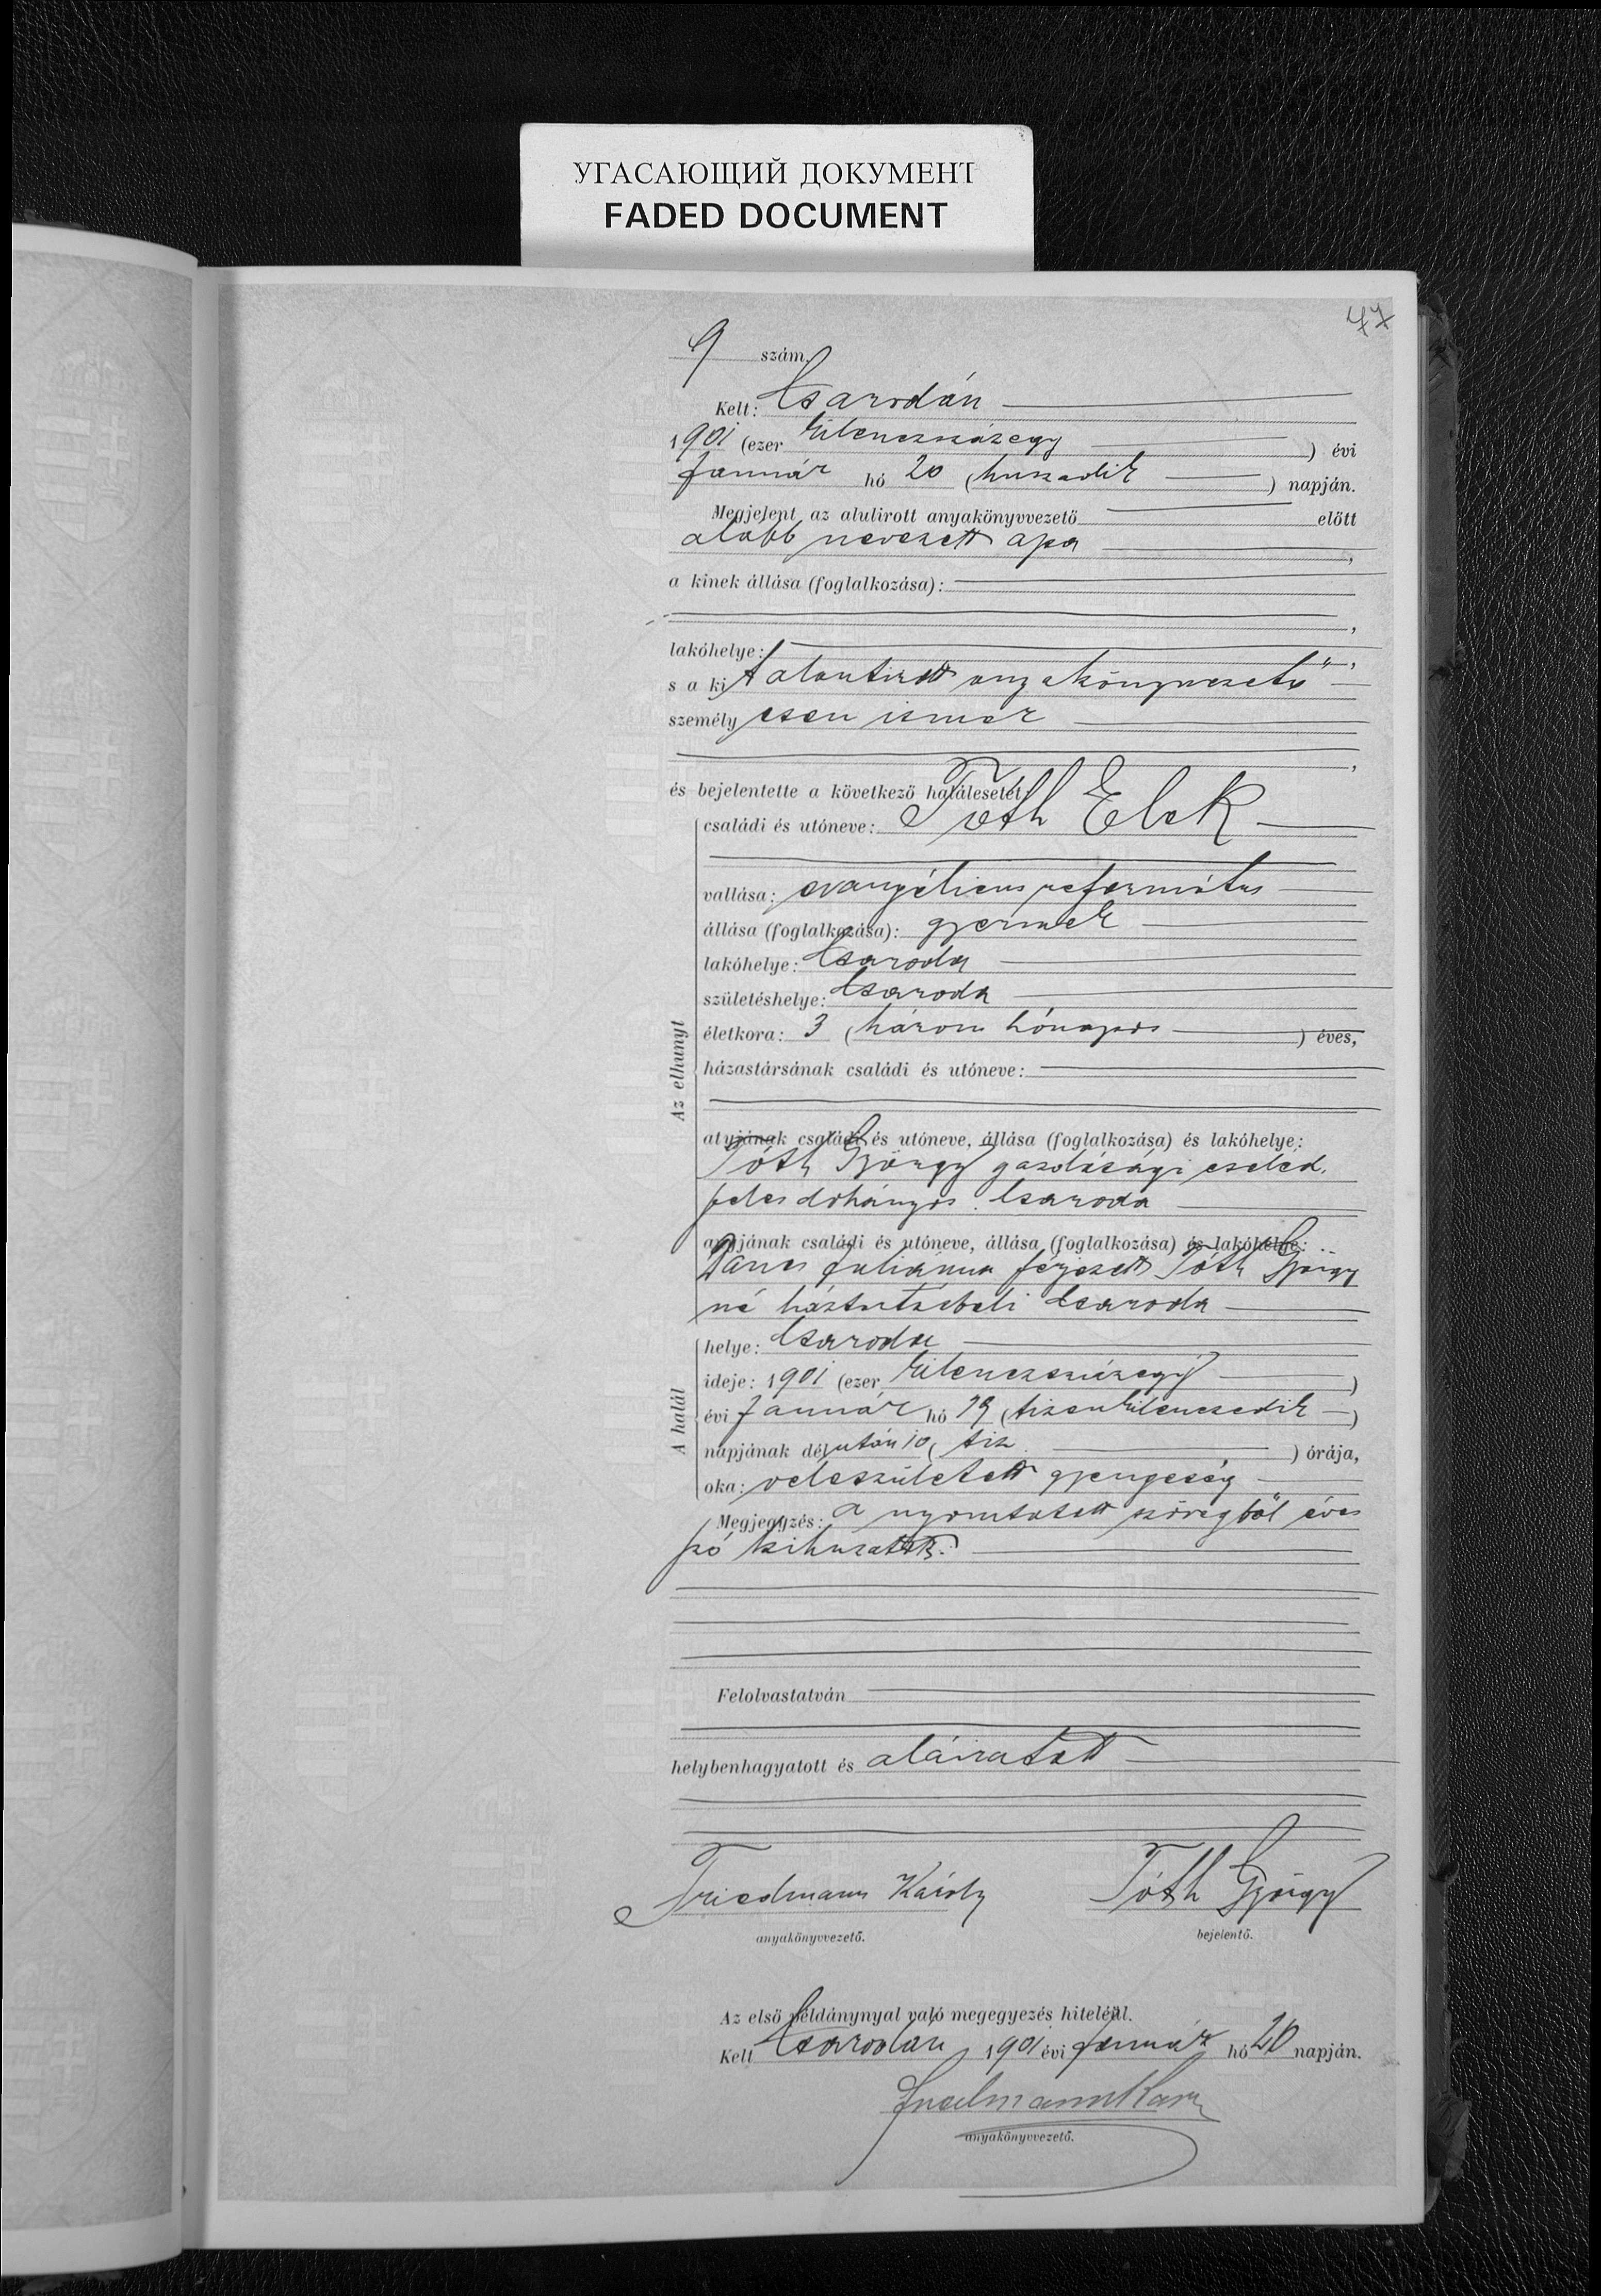 УГАСАЮЩИЙ ДОКУМЕНТ
FADED DOCUMENT
47
9 szám.
Kelt: Csarodán
1901 (ezer kilenczszázegy) évi
Január hó 20 (huszadik) napján.
Megjelent az alulirott anyakönyvvezető előtt
alább nevezett apa,
a kinek állása (foglalkozása):
lakóhelye:
s a kit alantirott anyakönyvvezető
személyesen ismer
és bejelentette a következő halálesetét
családi és utóneve: Tóth Elek
vallása: evangélicus református
állása (foglalkozása): gyermek
lakóhelye: Csaroda
születéshelye: Csaroda
életkora: 3 (három hónapos) éves,
házastársának családi és utóneve:
Az elhunyt
atyjának családi és utóneve, állása (foglalkozása) és lakóhelye:
Tóth György gazdasági cseléd,
feles dohányos Csaroda
anyjának családi és utóneve, állása (foglalkozása) és lakóhelye:
Juliánna férjezett Tóth György
né háztartásbeli Csaroda
A halál
helye: Csaroda
ideje: 1901 (ezer kilenczszázegy)
évi Január hó 19 (tizenkilenczedik)
napjának délután 10 (tiz) órája,
oka: veleszületett gyengeség
Megjegyzés: a nyomtatott szövegből éves
szó kihuzatott.
Felolvastatván
helybenhagyatott és aláiratott
Friedmann Károly Tóth György
anyakönyvvezető. bejelentő.
Az első példánynyal való megegyezés hiteléül.
Kelt Csarodán 1901 évi Január hó 20 napján.
anyakönyvvezető.